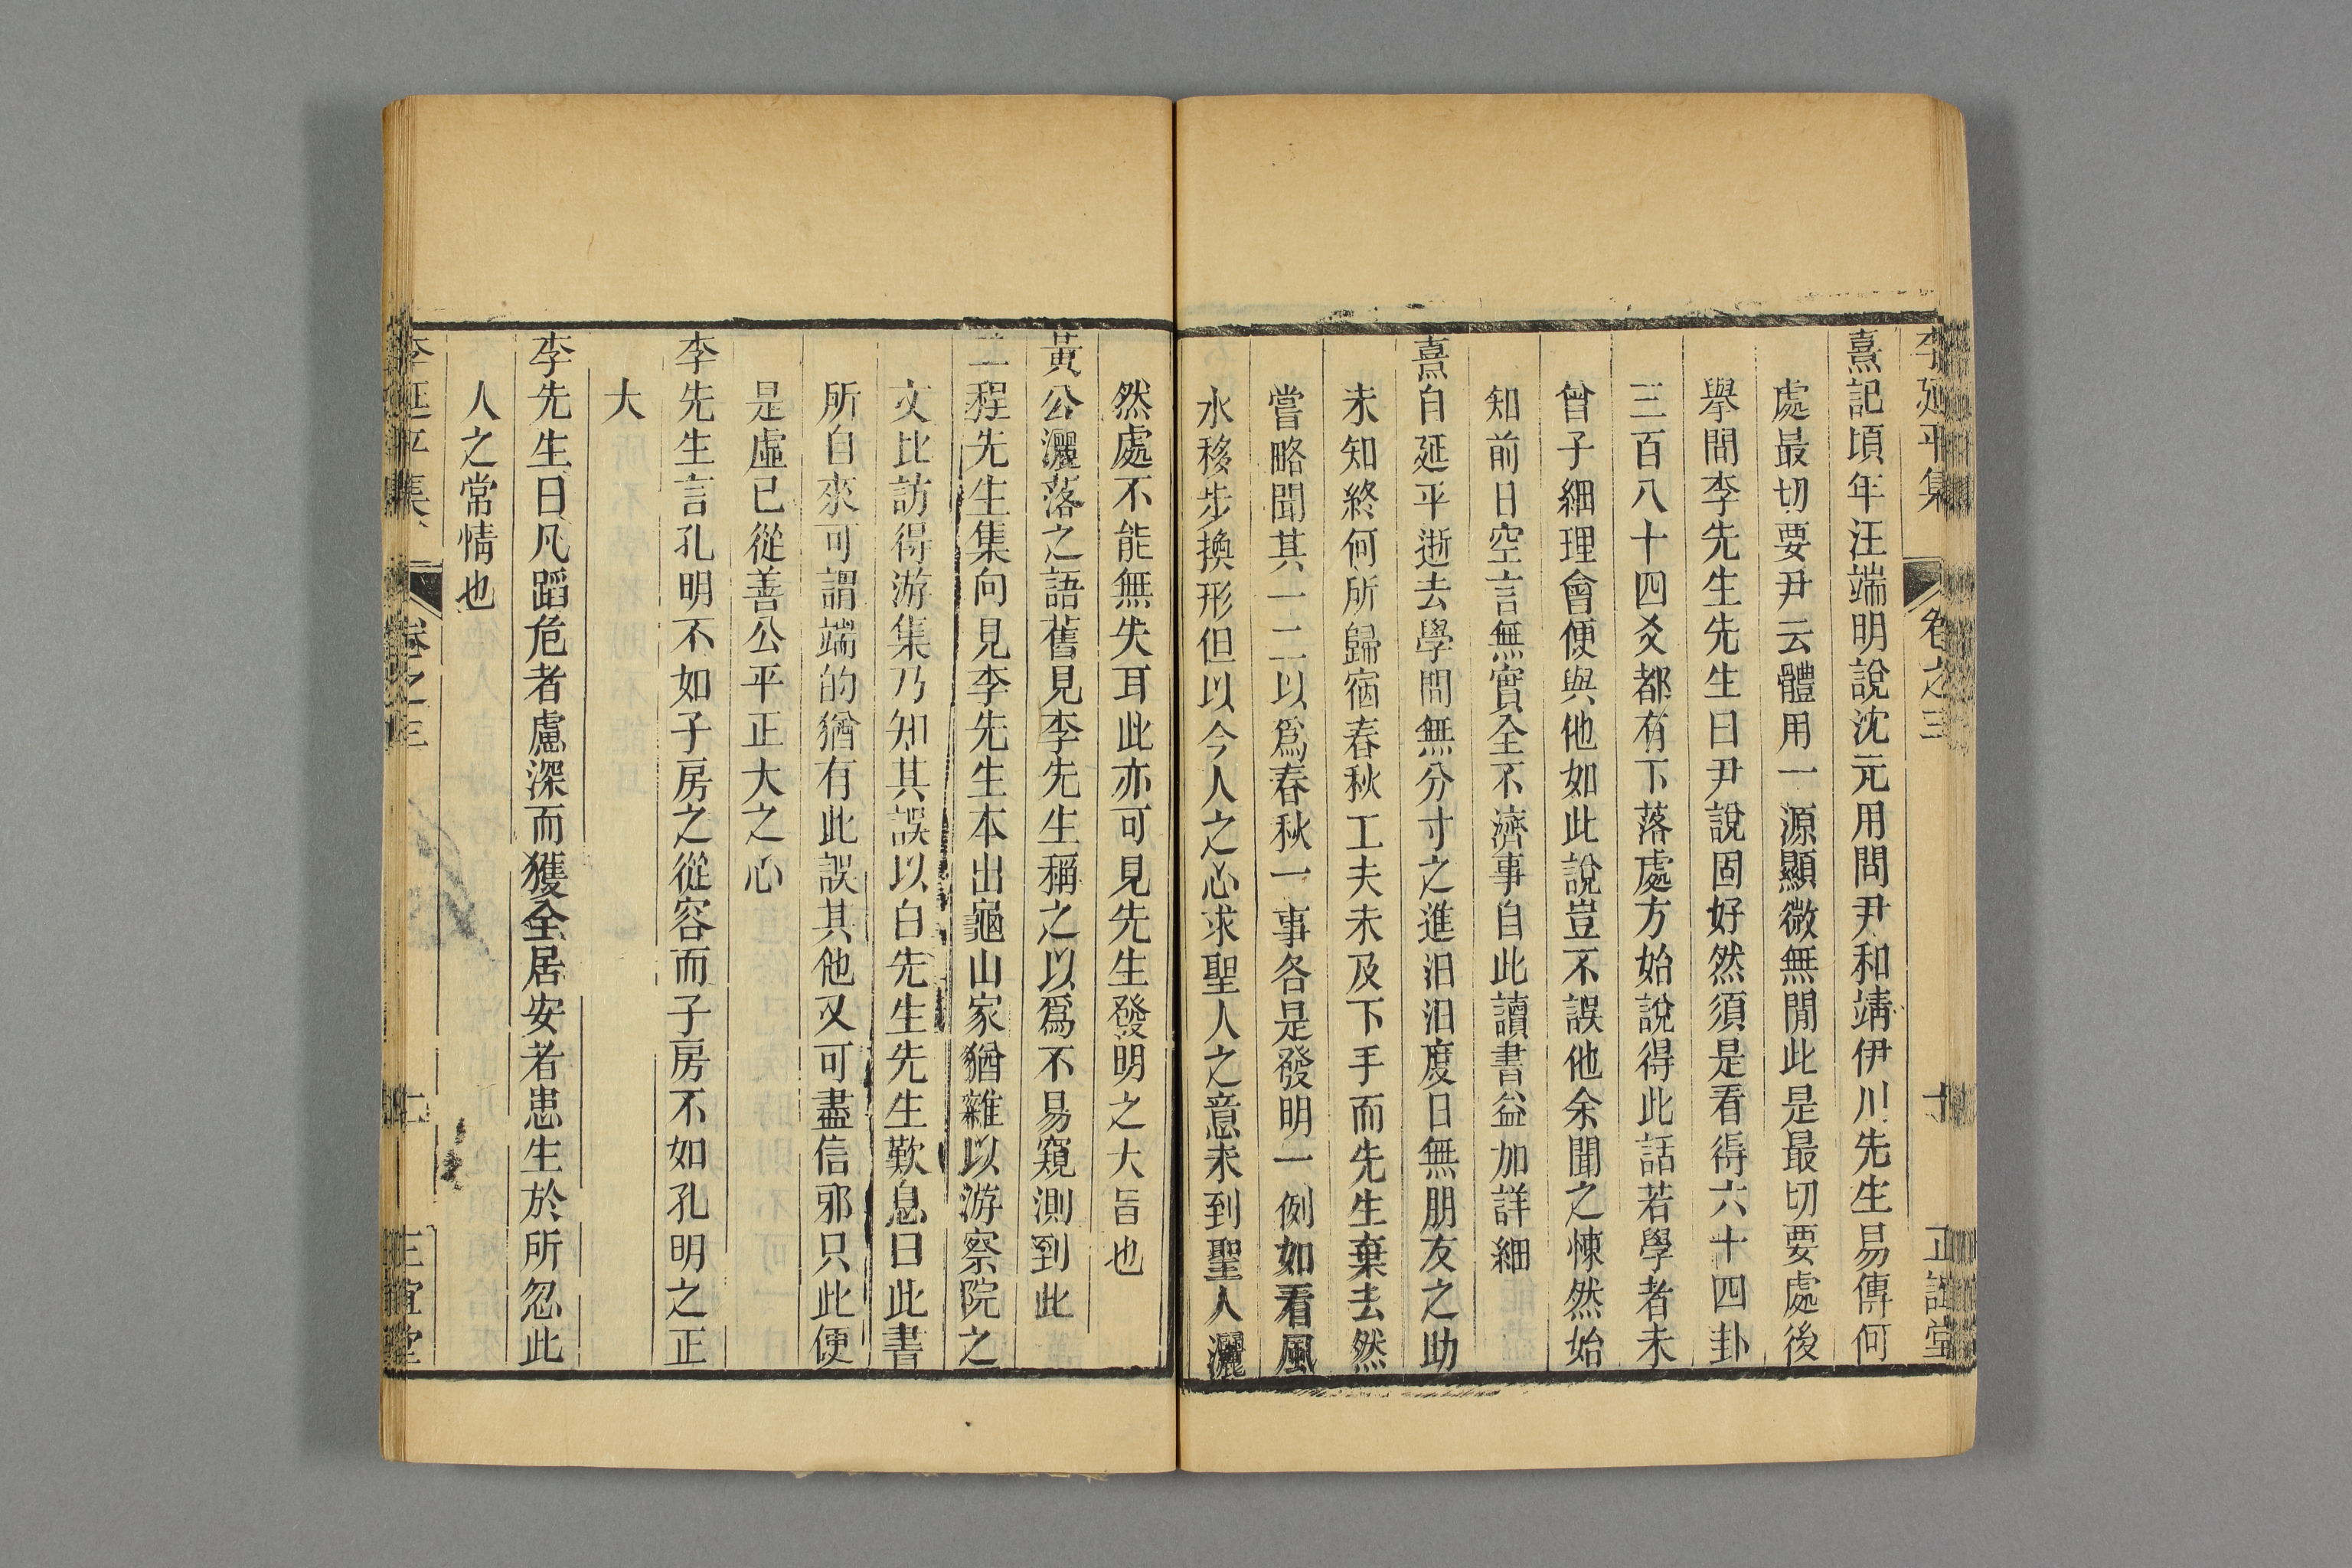 李延平集
卷之三
十
正誼堂
熹記頃年汪端明說沈元用問尹和靖伊川先生易傳何
處最切要尹云體用一源顯微無閒此是最切要處後
舉問李先生先生曰尹說固好然須是看得六十四卦
三百八十四爻都有下落處方始說得此話若學者未
曾子細理會便與他如此說豈不誤他余聞之悚然始
知前日空言無實全不濟事自此讀書益加詳細
熹自延平逝去學問無分寸之進汨汨度日無朋友之助
未知終何所歸宿春秋工夫未及下手而先生棄去然
嘗略聞其一二以爲春秋一事各是發明一例如看風
水移步換形但以今人之心求聖人之意未到聖人灑
然處不能無失耳此亦可見先生發明之大旨也
黃公灑落之語舊見李先生稱之以爲不易窺測到此
二程先生集向見李先生本出龜山家猶雜以游察院之
文比訪得游集乃知其誤以白先生先生歎息曰此書
所自來可謂端的猶有此誤其他又可盡信邪只此便
是虛己從善公平正大之心
李先生言孔明不如子房之從容而子房不如孔明之正
大
李先生曰凡蹈危者慮深而獲全居安者患生於所忽此
人之常情也
李延平集
卷之三
正誼堂